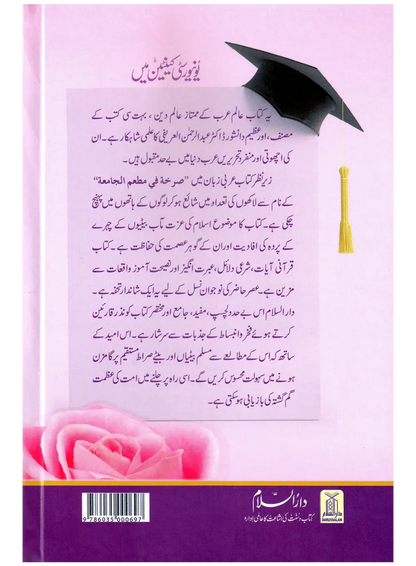 یونیورسٹی کینٹین میں
یہ کتاب عالم عرب کے ممتاز عالم دین، بہت سی کتب کے
مصنف، اور عظیم دانشور ڈاکٹر عبدالرحمٰن العریفی کا علمی شاہکار ہے۔ ان
کی اچھوتی اور منفرد تحریریں عرب دنیا میں بے حد مقبول ہیں۔
زیر نظر کتاب عربی زبان میں "صرخة في مطعم الجامعة"
کے نام سے لاکھوں کی تعداد میں شائع ہو کر لوگوں کے ہاتھوں میں پہنچ
چکی ہے۔ کتاب کا موضوع اسلام کی عزت مآب بیٹیوں کے چہرے
کے پردہ کی افادیت اور ان کے گوہر عصمت کی حفاظت ہے۔ کتاب
قرآنی آیات، شرعی دلائل، عبرت انگیز اور نصیحت آموز واقعات سے
مزین ہے۔ عصر حاضر کی نوجوان نسل کے لیے یہ ایک شاندار تحفہ ہے۔
دارالسلام اس بے حد دلچسپ، مفید، جامع اور مختصر کتاب کو نذر قارئین
کرتے ہوئے فخر و انبساط کے جذبات سے سرشار ہے۔ اس امید کے
ساتھ کہ اس کے مطالعے سے مسلم بیٹیاں اور بیٹے صراط مستقیم پر گامزن
ہونے میں سہولت محسوس کریں گے۔ اسی راہ پر چلنے میں امت کی عظمت
گم گشتہ کی بازیابی ہو سکتی ہے۔
دارالسلام
کتاب و سنت کی اشاعت کا عالمی ادارہ
DARUSSALAM
9 786035 000697